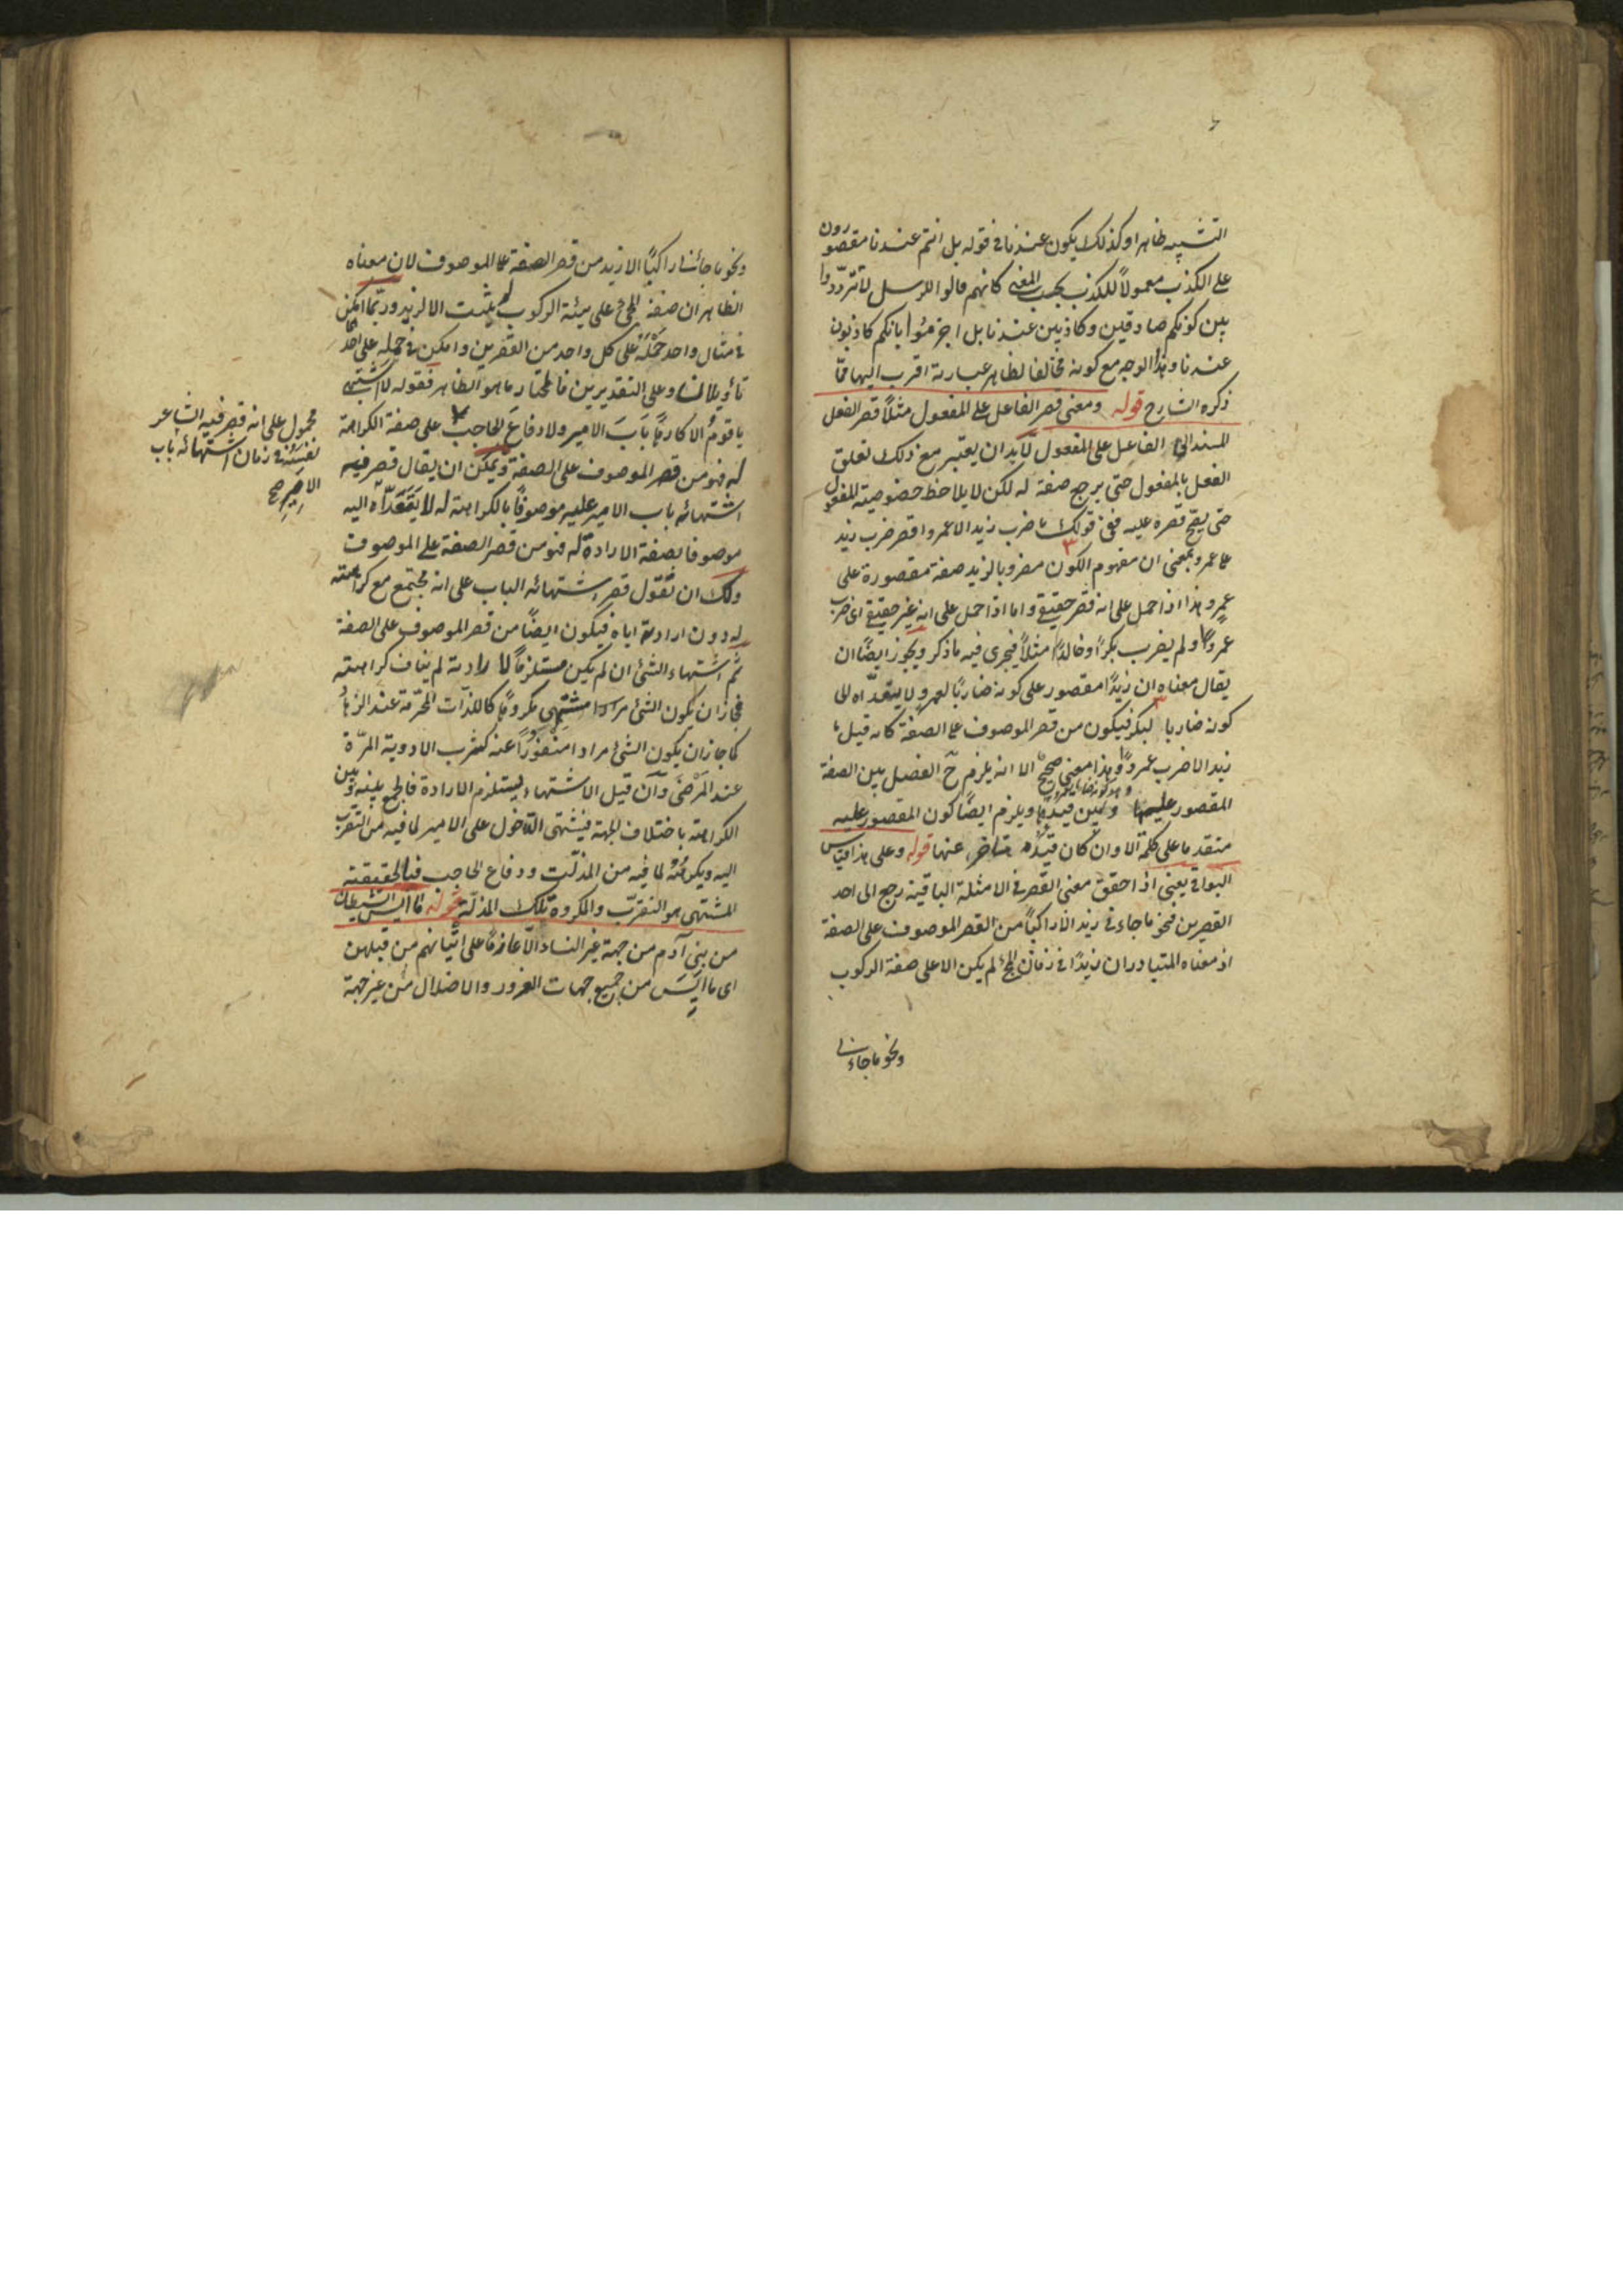 التشبيه ظاهرا وكذلك يكون عندنا في قوله بل انتم عندنا مقصورون
على الكذب معمولاً للكذب بحسب المعنى كانهم قالوا للرسل لا تترددوا
بين كونكم صادقين وكاذبين عندنا بل اجزموا بانكم كاذبون
عندنا وهذا الوجه مع كونه مخالفا لظاهر عبارته اقرب اليها مما
ذكره الشارح قوله ومعنى قصر الفاعل على المفعول مثلاً قصر الفعل
المسند الى الفاعل على المفعول لابد ان يعتبر مع ذلك تعلق
الفعل بالمفعول حتى يرجع صفة له لكن لا يلاحظ خصوصية المفعول
حتى يصح قصره عليه ففى قولك ما ضرب زيد الا عمروا قصر ضرب زيد
على عمرو بمعنى ان مفهوم الكون مضروبا لزيد صفة مقصورة على
عمرو هذا اذا حمل على انه قصر حقيقي واما اذا حمل على انه غير حقيقي اى ضرب
عمروًا ولم يضرب بكرًا وخالدًا مثلاً فيجرى فيه ما ذكر ويجوز ايضًا ان
يقال معناه ان زيدًا مقصور على كونه ضاربًا لعمرو لا يتعداه الى
كونه ضاربا لبكر فيكون من قصر الموصوف على الصفة كانه قيل ما
زيد الا ضرب عمروًا وهذا معنى صحيح الا انه يلزم ح الفصل بين الصفة
المقصور عليها وبين قيدها ويلزم ايضًا كون المقصور عليه
متقدما على كلمة الا وان كان قيده متاخرا عنها قوله وعلى هذا قياس
البواقي يعنى اذا حقق معنى القصر في الامثلة الباقية رجع الى احد
القصرين فنحو ما جاءنى زيد الا راكبًا من القصر الموصوف على الصفة
اذ معناه المتبادر ان زيدًا في زمان المجئ لم يكن الا على صفة الركوب
ونحو ما جاءنى
ونحو ما جاءنى راكبًا الا زيد من قصر الصفة على الموصوف لان معناه
الظاهر ان صفة المجئ على هيئة الركوب لم يثبت الا لزيد وربما امكن
في مثال واحد حمله على كل واحد من القصرين وامكن في حمله على احدهما
تأويلان وعلى التقديرين فالمختار ما هو الظاهر فقوله لا اشتهى
يا قوم الا كارهًا باب الامير ولا دفاع الحاجب على صفة الكراهة
له فهو من قصر الموصوف على الصفة ويمكن ان يقال قصر فيه
اشتهائه باب الامير عليه موصوفًا بالكراهة له لا يتعداه اليه
موصوفا بصفة الارادة له فهو من قصر الصفة على الموصوف
ولك ان تقول قصر اشتهائه الباب على انه مجتمع مع كراهته
له دون ارادته اياه فيكون ايضًا من قصر الموصوف على الصفة
ثم اشتهاء الشئ ان لم يكن مستلزمًا لارادته لم يناف كراهته
فجاز ان يكون الشئ مشتهى مكروهًا كاللذات المحرمة عند الزهاد
كما جاز ان يكون الشئ مرادا منفورًا عنه كشرب الادوية المرّة
عند المرضى وان قيل الاشتهاء يستلزم الارادة فالجمع بينه وبين
الكراهة باختلاف الجهة فيشتهى الدخول على الامير لما فيه من التقرب
اليه ويكرهه لما فيه من المذلة ودفاع الحاجب فبالحقيقة
المشتهى هو التقرب والمكروه تلك المذلة قوله ما ايس الشيطان
من بنى آدم من جهة غير النساء الا عازمًا على اتيانهم من قبلهن
اى ما ايس من جميع جهات الغرور والاضلال من غير جهة
محمول على انه قصر فيه الشاعر
نفسه في زمان اشتهائه باب
الامير صح